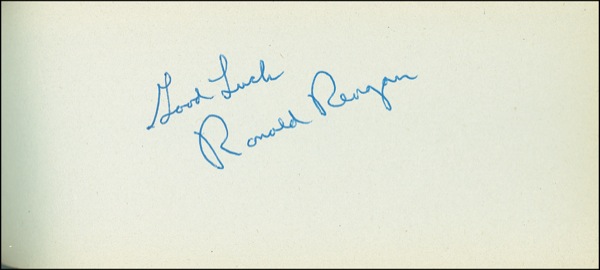 Good Luck
Ronald Reagan